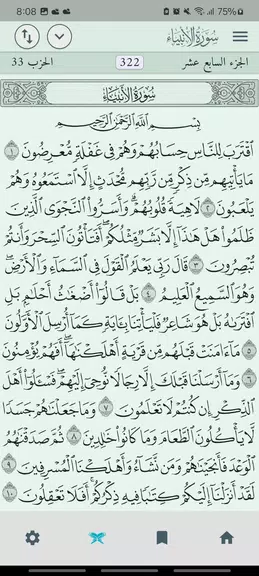 8:08
75%
سُورَةُ الأَنبِيَاءِ
الجزء السابع عشر
322
الحزب 33
سُورَةُ الأَنبِيَاءِ
بِسْمِ اللَّهِ الرَّحْمَٰنِ الرَّحِيمِ
ٱقْتَرَبَ لِلنَّاسِ حِسَابُهُمْ وَهُمْ فِي غَفْلَةٍ مُّعْرِضُونَ ١
مَا يَأْتِيهِم مِّن ذِكْرٍ مِّن رَّبِّهِم مُّحْدَثٍ إِلَّا ٱسْتَمَعُوهُ وَهُمْ
يَلْعَبُونَ ٢ لَاهِيَةً قُلُوبُهُمْ ۗ وَأَسَرُّوا۟ ٱلنَّجْوَى ٱلَّذِينَ
ظَلَمُوا۟ هَلْ هَٰذَآ إِلَّا بَشَرٌ مِّثْلُكُمْ ۖ أَفَتَأْتُونَ ٱلسِّحْرَ وَأَنتُمْ
تُبْصِرُونَ ٣ قَالَ رَبِّي يَعْلَمُ ٱلْقَوْلَ فِي ٱلسَّمَآءِ وَٱلْأَرْضِ ۖ
وَهُوَ ٱلسَّمِيعُ ٱلْعَلِيمُ ٤ بَلْ قَالُوٓا۟ أَضْغَٰثُ أَحْلَٰمٍ بَلِ
ٱفْتَرَىٰهُ بَلْ هُوَ شَاعِرٌ فَلْيَأْتِنَا بِـَٔايَةٍ كَمَآ أُرْسِلَ ٱلْأَوَّلُونَ
٥ مَآ ءَامَنَتْ قَبْلَهُم مِّن قَرْيَةٍ أَهْلَكْنَٰهَآ ۖ أَفَهُمْ يُؤْمِنُونَ
٦ وَمَآ أَرْسَلْنَا قَبْلَكَ إِلَّا رِجَالًا نُّوحِيٓ إِلَيْهِمْ ۖ فَسْـَٔلُوٓا۟ أَهْلَ
ٱلذِّكْرِ إِن كُنتُمْ لَا تَعْلَمُونَ ٧ وَمَا جَعَلْنَٰهُمْ جَسَدًا
لَّا يَأْكُلُونَ ٱلطَّعَامَ وَمَا كَانُوا۟ خَٰلِدِينَ ٨ ثُمَّ صَدَقْنَٰهُمُ
ٱلْوَعْدَ فَأَنجَيْنَٰهُمْ وَمَن نَّشَآءُ وَأَهْلَكْنَا ٱلْمُسْرِفِينَ ٩
لَقَدْ أَنزَلْنَآ إِلَيْكُمْ كِتَٰبًا فِيهِ ذِكْرُكُمْ ۖ أَفَلَا تَعْقِلُونَ ١٠